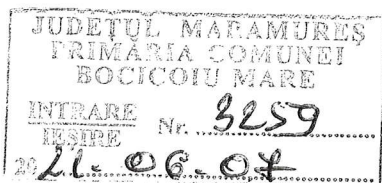 JUDEŢUL MARAMUREŞ
PRIMĂRIA COMUNEI
BOCICOIU MARE
INTRARE
IEŞIRE
Nr. 3259
2021.06.07